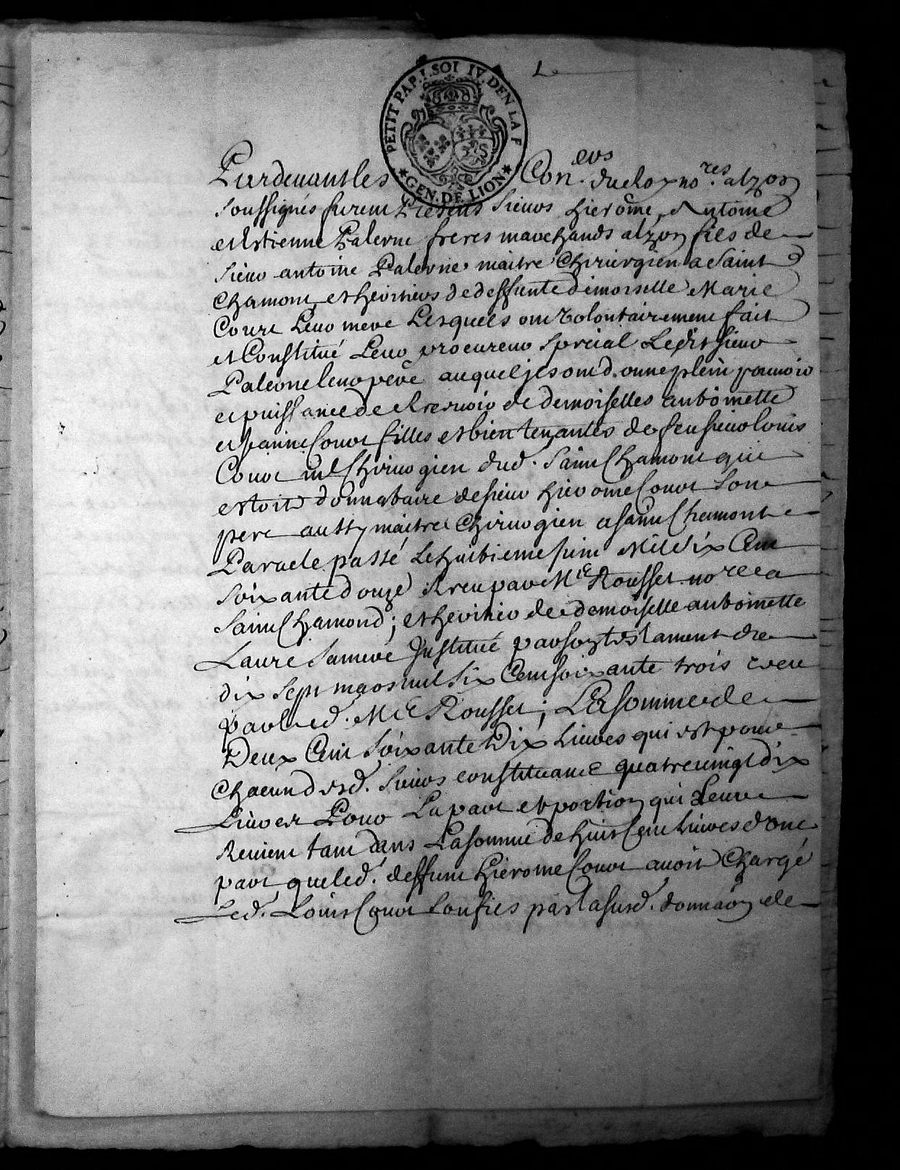 PETIT PAP. I. SOI IV. DEN LA F
GEN. DE LION
Pardevant les Con.ers du Roy no.res a Lyon
Soussignés furent Presens Sieurs hierosme, Antoine
et Estienne Palerne freres marchands a Lyon fils de
Sieur antoine Palerne maitre Chirurgien a Saint
Chamont, et heritiers de deffunte demoiselle Marie
Couret Leur mere Lesquels ont volontairement fait
et Constitué Leur procureur special Ledit Sieur
Palerne leur pere auquel ils ont donné plein pouvoir
et puissance de Recevoir de demoiselles anthoinette
et Jeanne Couret filles et bien tenantes de feu sieur louis
Couret m.e Chirurgien dud. Saint Chamont qui
estoit donnataire de sieur hierome Couret son
pere aussy maitre Chirurgien a saint Chamont
Par acte passé Le huitieme juin Mil six Cent
soixante douze Receu par M.e Rousset no.re a
Saint Chamond; et heritier de demoiselle anthoinette
Laure sa mere Institué par son testament du
dix sept mars mil six Cent soixante trois receu
par led. M.e Rousset; La somme de
Deux Cent soixante Dix Livres qui est pour
Chacun desd. Sieurs constituans quatre vingt dix
Livres Pour La part et portion qui Leur
Revient tant dans La somme de huit Cent Livres d'une
part que led. deffunt hierome Couret avoit Chargé
Led. Louis Couret son fils par la susd. donnaon de